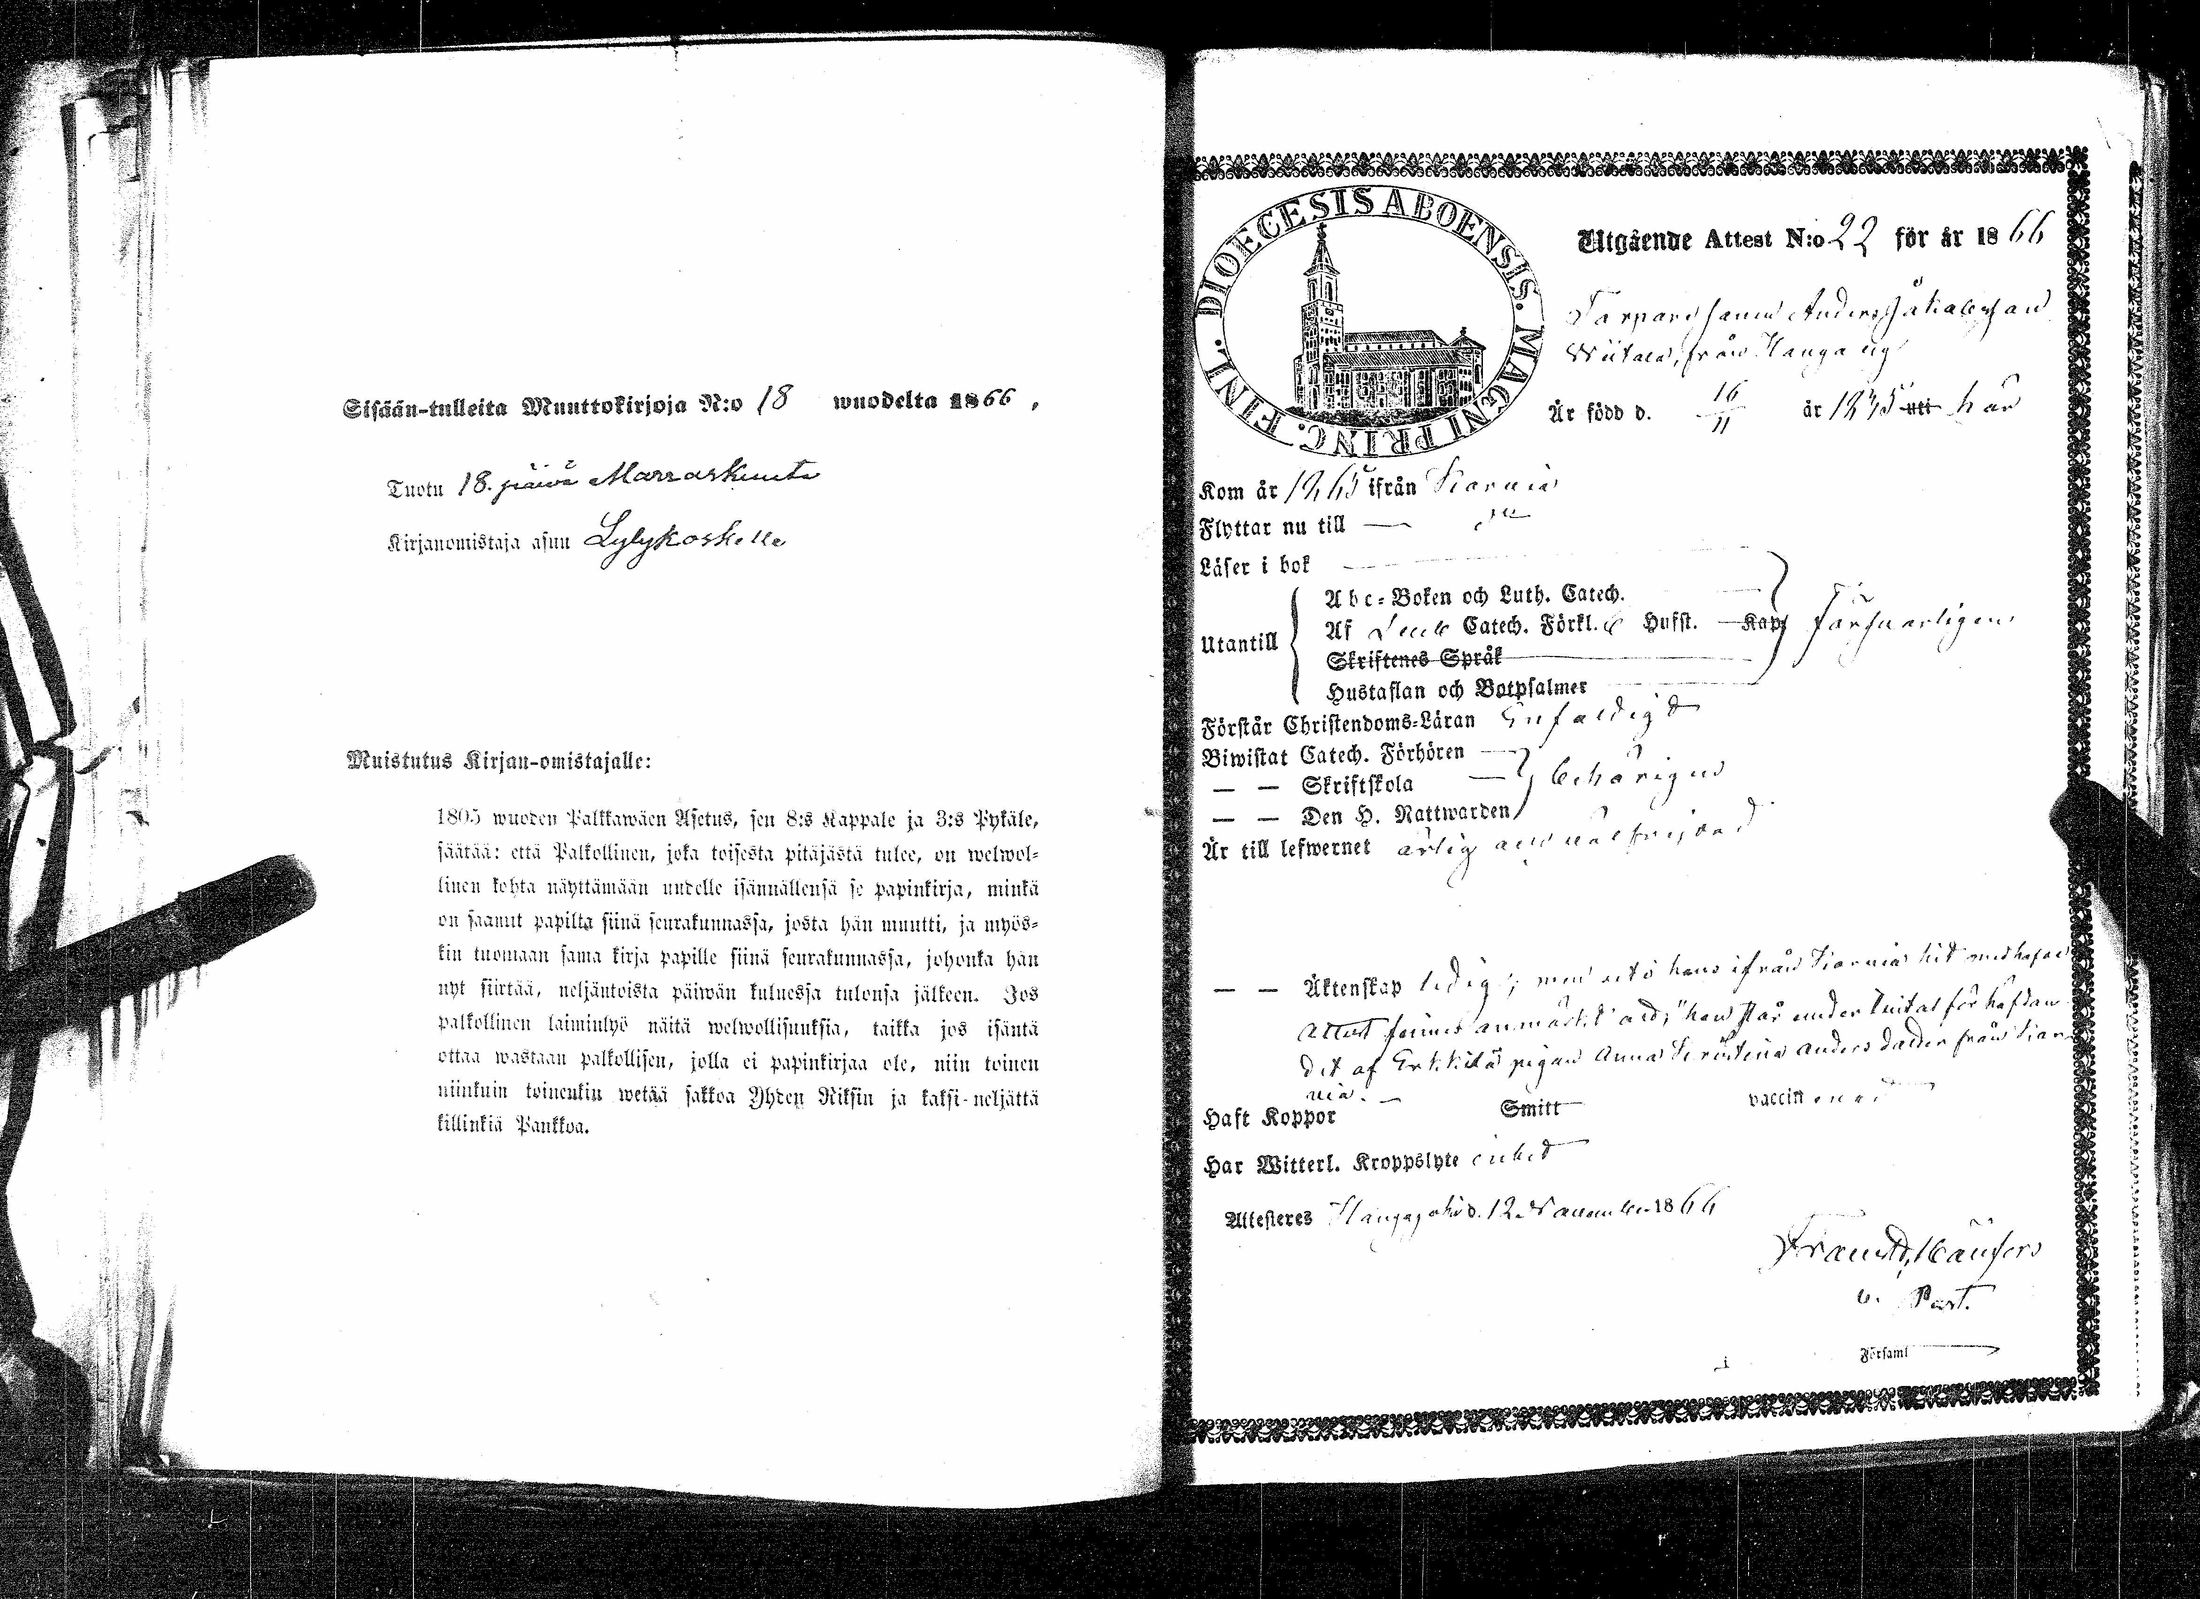 Sisään-tulleita Muuttokirjoja N:o 18 wuodelta 1866,
Tuotu 18. päivä Marraskuuta
Kirjanomistaja asuu Lylykoskella
Muistutus Kirjan-omistajalle:
1805 wuoden Palkkawäen Asetus, sen 8:s Kappale ja 3:s Pykäle,
säätää: että Palkollinen, joka toisesta pitäjästä tulee, on welwol-
linen kohta näyttämään uudelle isännällensä se papinkirja, minkä
on saanut papilta siinä seurakunnassa, josta hän muutti, ja myös-
kin tuomaan sama kirja papille siinä seurakunnassa, johonka hän
nyt siirtää, neljäntoista päiwän kuluessa tulonsa jälkeen. Jos
palkollinen laiminlyö näitä welwollisuuksia, taikka jos isäntä
ottaa wastaan palkollisen, jolla ei papinkirjaa ole, niin toinen
niinkuin toinenkin wetää sakkoa Yhden Riksin ja kaksi-neljättä
killinkiä Pankkoa.
DIOECESIS ABOENSIS. MAGNI PRINC. FINL.
Utgående Attest N:o 22 för år 1866
Torpare sonen Anders Jakobsson
från Kanga
Är född d. 16/11 år 1845 uti här
Kom år 1865 ifrån Kiarvia
Flyttar nu till —
Läser i bok
Abc-Boken och Luth. Catech.
Utantill Af Catech. Förkl. Hufst. Kap. försvarligen
Skriftenes Språk
Hustaflan och Botpsalmer
Förstår Christendoms-Läran Enfaldigt
Biwistat Catech. Förhören
— — Skriftskola behörigen
— — Den H. Nattwarden
Är till lefwernet ärlig och välfrejdad
— — Äktenskap ledig; men uti hans ifrån Kiarvia hit medhafde
Attest finnes anmärkt att, "han står under tilltal för häfdan-
det af pigan Anna Kristina Andersdotter från Kiar-
via. —
Haft Koppor Smitt vaccin erad
Har Witterl. Kroppslyte intet
Attesteres d. 12 November 1866
v. Past.
i Församl